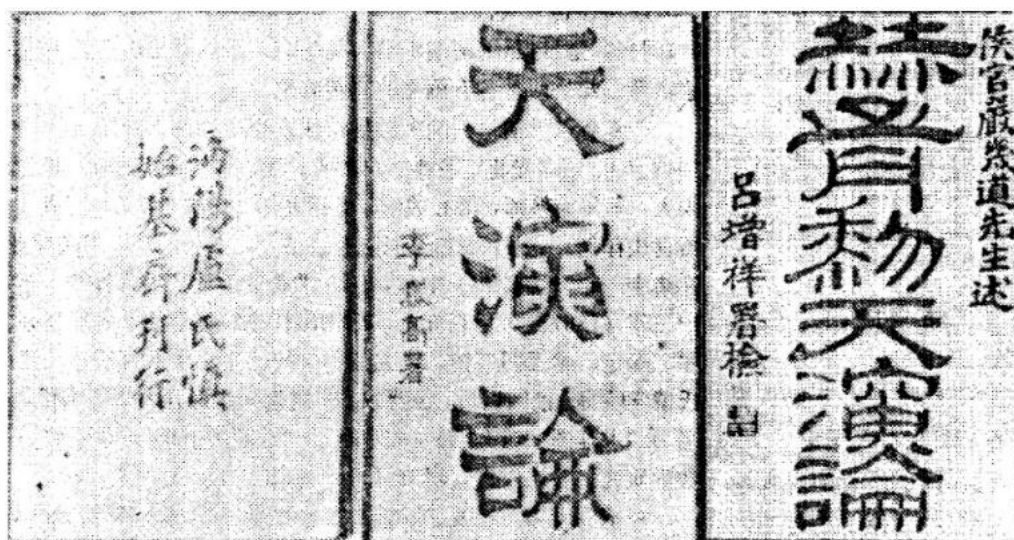 侯官嚴幾道先生述
赫胥黎天演論
呂增祥署檢
天演論
沔陽盧氏慎
始基齋刊行